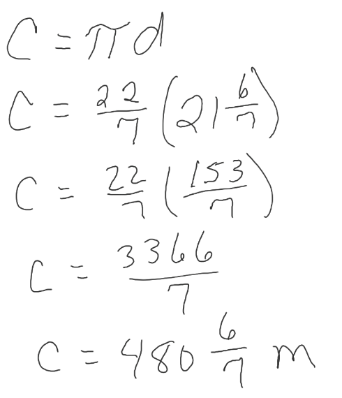 C = πd
C = 22/7 (21 6/7)
C = 22/7 (153/7)
C = 3366/7
C = 480 6/7 m